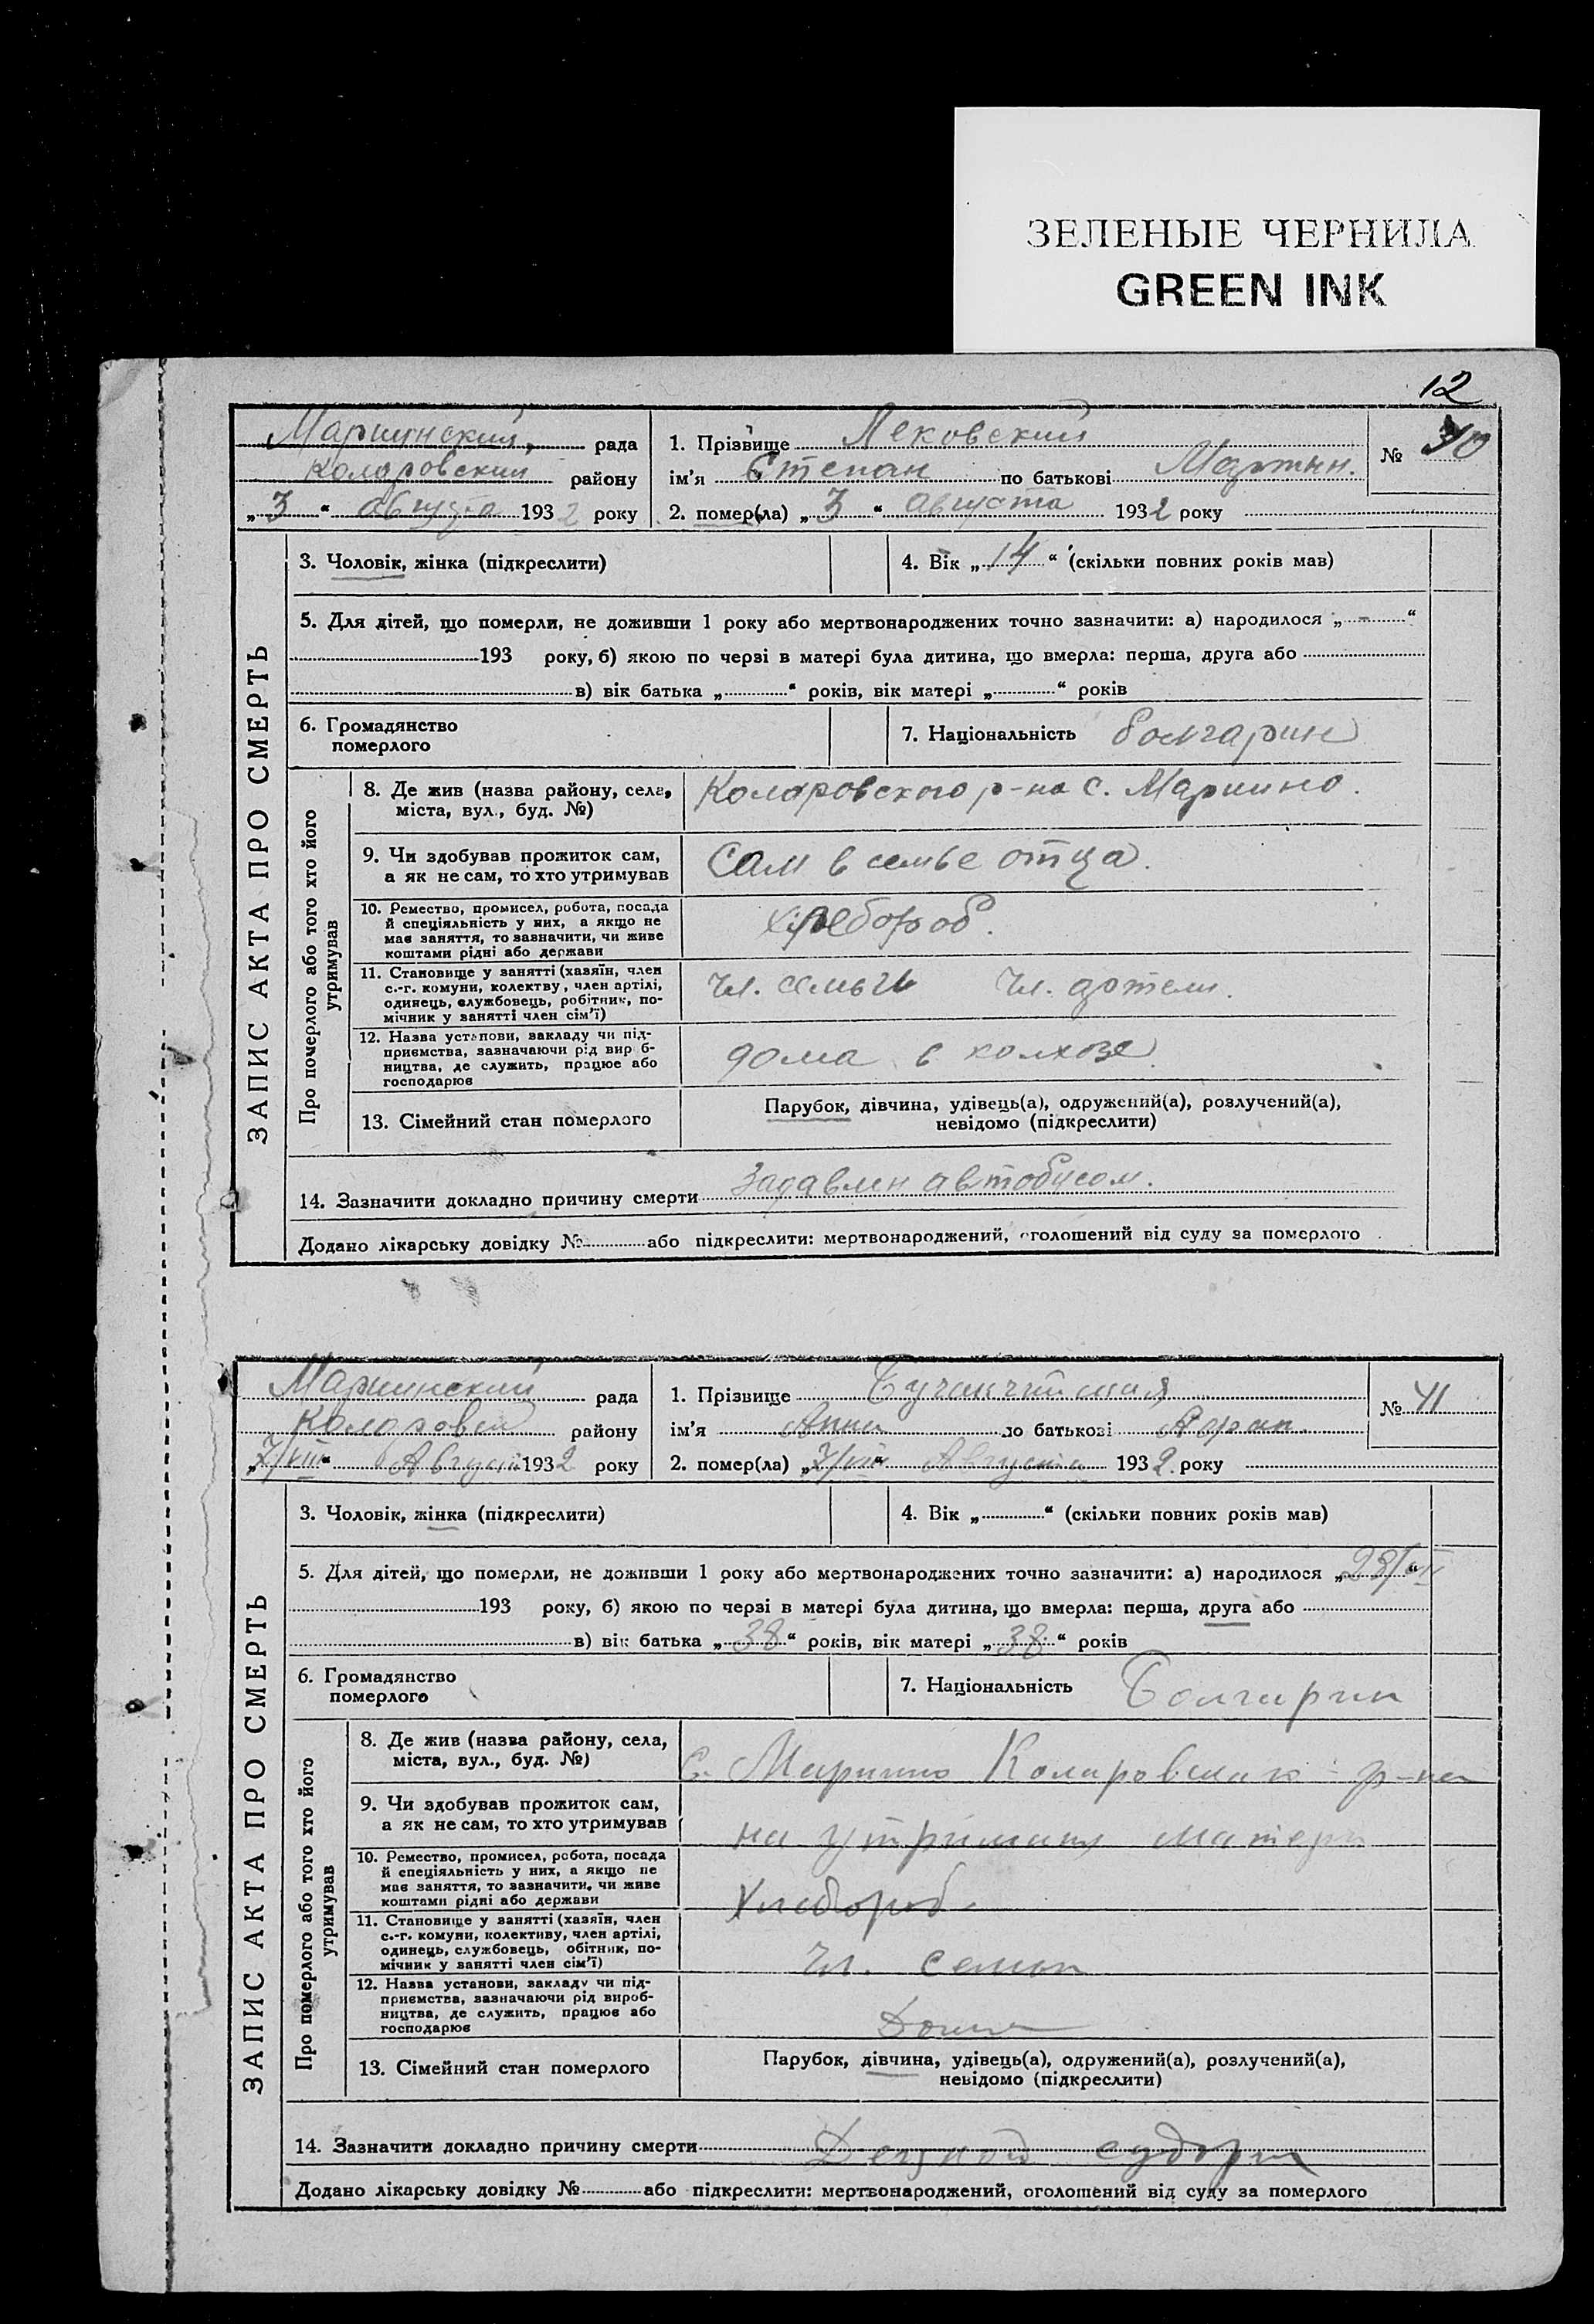 ЗЕЛЕНЫЕ ЧЕРНИЛА
GREEN INK
12
ЗАПИС АКТА ПРО СМЕРТЬ
Мариинский рада
Коларовский району
„3“ августа 1932 року
1. Прізвище Лековский
ім'я Степан по батькові Мартын.
№ 40
2. помер(ла) „3“ августа 1932 року
3. Чоловік, жінка (підкреслити)
4. Вік „14“ (скільки повних років мав)
5. Для дітей, що померли, не доживши 1 року або мертвонароджених точно зазначити: а) народилося „-“
193 року, б) якою по черзі в матері була дитина, що вмерла: перша, друга або
в) вік батька „ “ років, вік матері „ “ років
6. Громадянство
померлого
7. Національність болгарин
Про померлого або того хто його
утримував
8. Де жив (назва району, села,
міста, вул., буд. №)
Коларовского р-на с. Мариино.
9. Чи здобував прожиток сам,
а як не сам, то хто утримував
Сам в семье отца.
10. Ремество, промисел, робота, посада
й спеціяльність у них, а якщо не
має заняття, то зазначити, чи живе
коштами рідні або держави
хлебороб.
11. Становище у занятті (хазяїн, член
с.-г. комуни, колективу, член артілі,
одинець, службовець, робітник, по-
мічник у занятті член сім'ї)
Чл. семьи Чл. артели.
12. Назва установи, закладу чи під-
приємства, зазначаючи рід вироб-
ництва, де служить, працює або
господарює
дома в колхозе
13. Сімейний стан померлого
Парубок, дівчина, удівець(а), одружений(а), розлучений(а),
невідомо (підкреслити)
14. Зазначити докладно причину смерти Задавлен автобусом.
Додано лікарську довідку № або підкреслити: мертвонароджений, оголошений від суду за померлого
ЗАПИС АКТА ПРО СМЕРТЬ
Мариинский рада
Коларовск району
1932 року
1. Прізвище
ім'я Анна по батькові
№ 41
2. помер(ла) „3/VIII“ Августа 1932 року
3. Чоловік, жінка (підкреслити)
4. Вік „ “ (скільки повних років мав)
5. Для дітей, що померли, не доживши 1 року або мертвонароджених точно зазначити: а) народилося „ “
193 року, б) якою по черзі в матері була дитина, що вмерла: перша, друга або
в) вік батька „38“ років, вік матері „38“ років
6. Громадянство
померлого
7. Національність Болгарин
Про померлого або того хто його
утримував
8. Де жив (назва району, села,
міста, вул., буд. №)
С. Мариино р-на
9. Чи здобував прожиток сам,
а як не сам, то хто утримував
на утриманн матери
10. Ремество, промисел, робота, посада
й спеціяльність у них, а якщо не
має заняття, то зазначити, чи живе
коштами рідні або держави
Хлебороб
11. Становище у занятті (хазяїн, член
с.-г. комуни, колективу, член артілі,
одинець, службовець, обітник, по-
мічник у занятті член сім'ї)
Чл. семьи
12. Назва установи, закладу чи під-
приємства, зазначаючи рід вироб-
ництва, де служить, працює або
господарює
Дома
13. Сімейний стан померлого
Парубок, дівчина, удівець(а), одружений(а), розлучений(а),
невідомо (підкреслити)
14. Зазначити докладно причину смерти
Додано лікарську довідку № або підкреслити: мертвонароджений, оголошений від суду за померлого